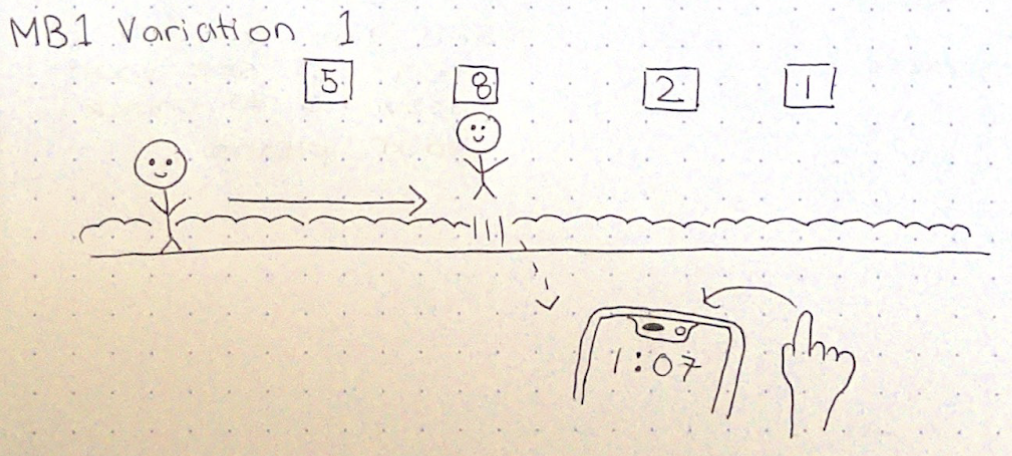 MB1 Variation 1
5 8 2 1
1:07